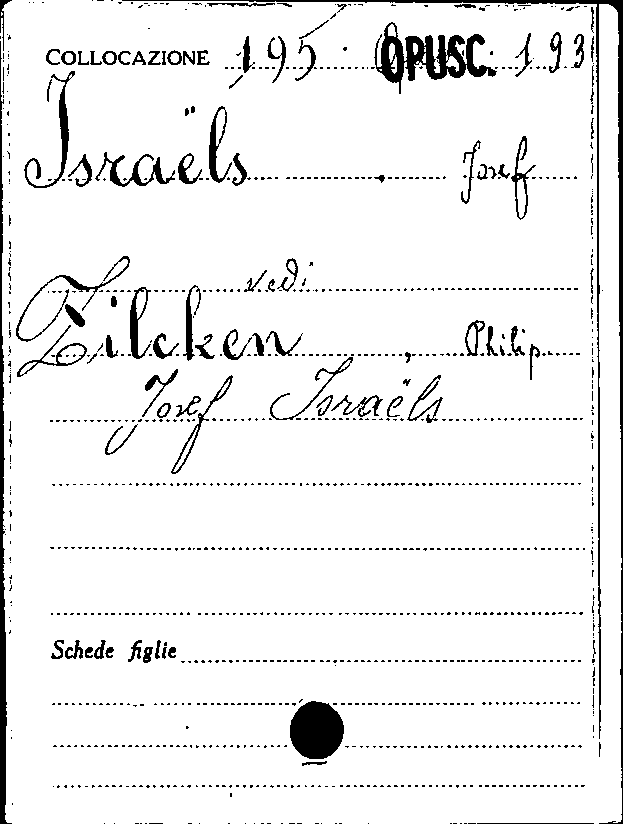 COLLOCAZIONE 195 · OPUSC. 193
Israëls . Josef
vedi
Zilcken , Philip
Josef Israëls
Schede figlie